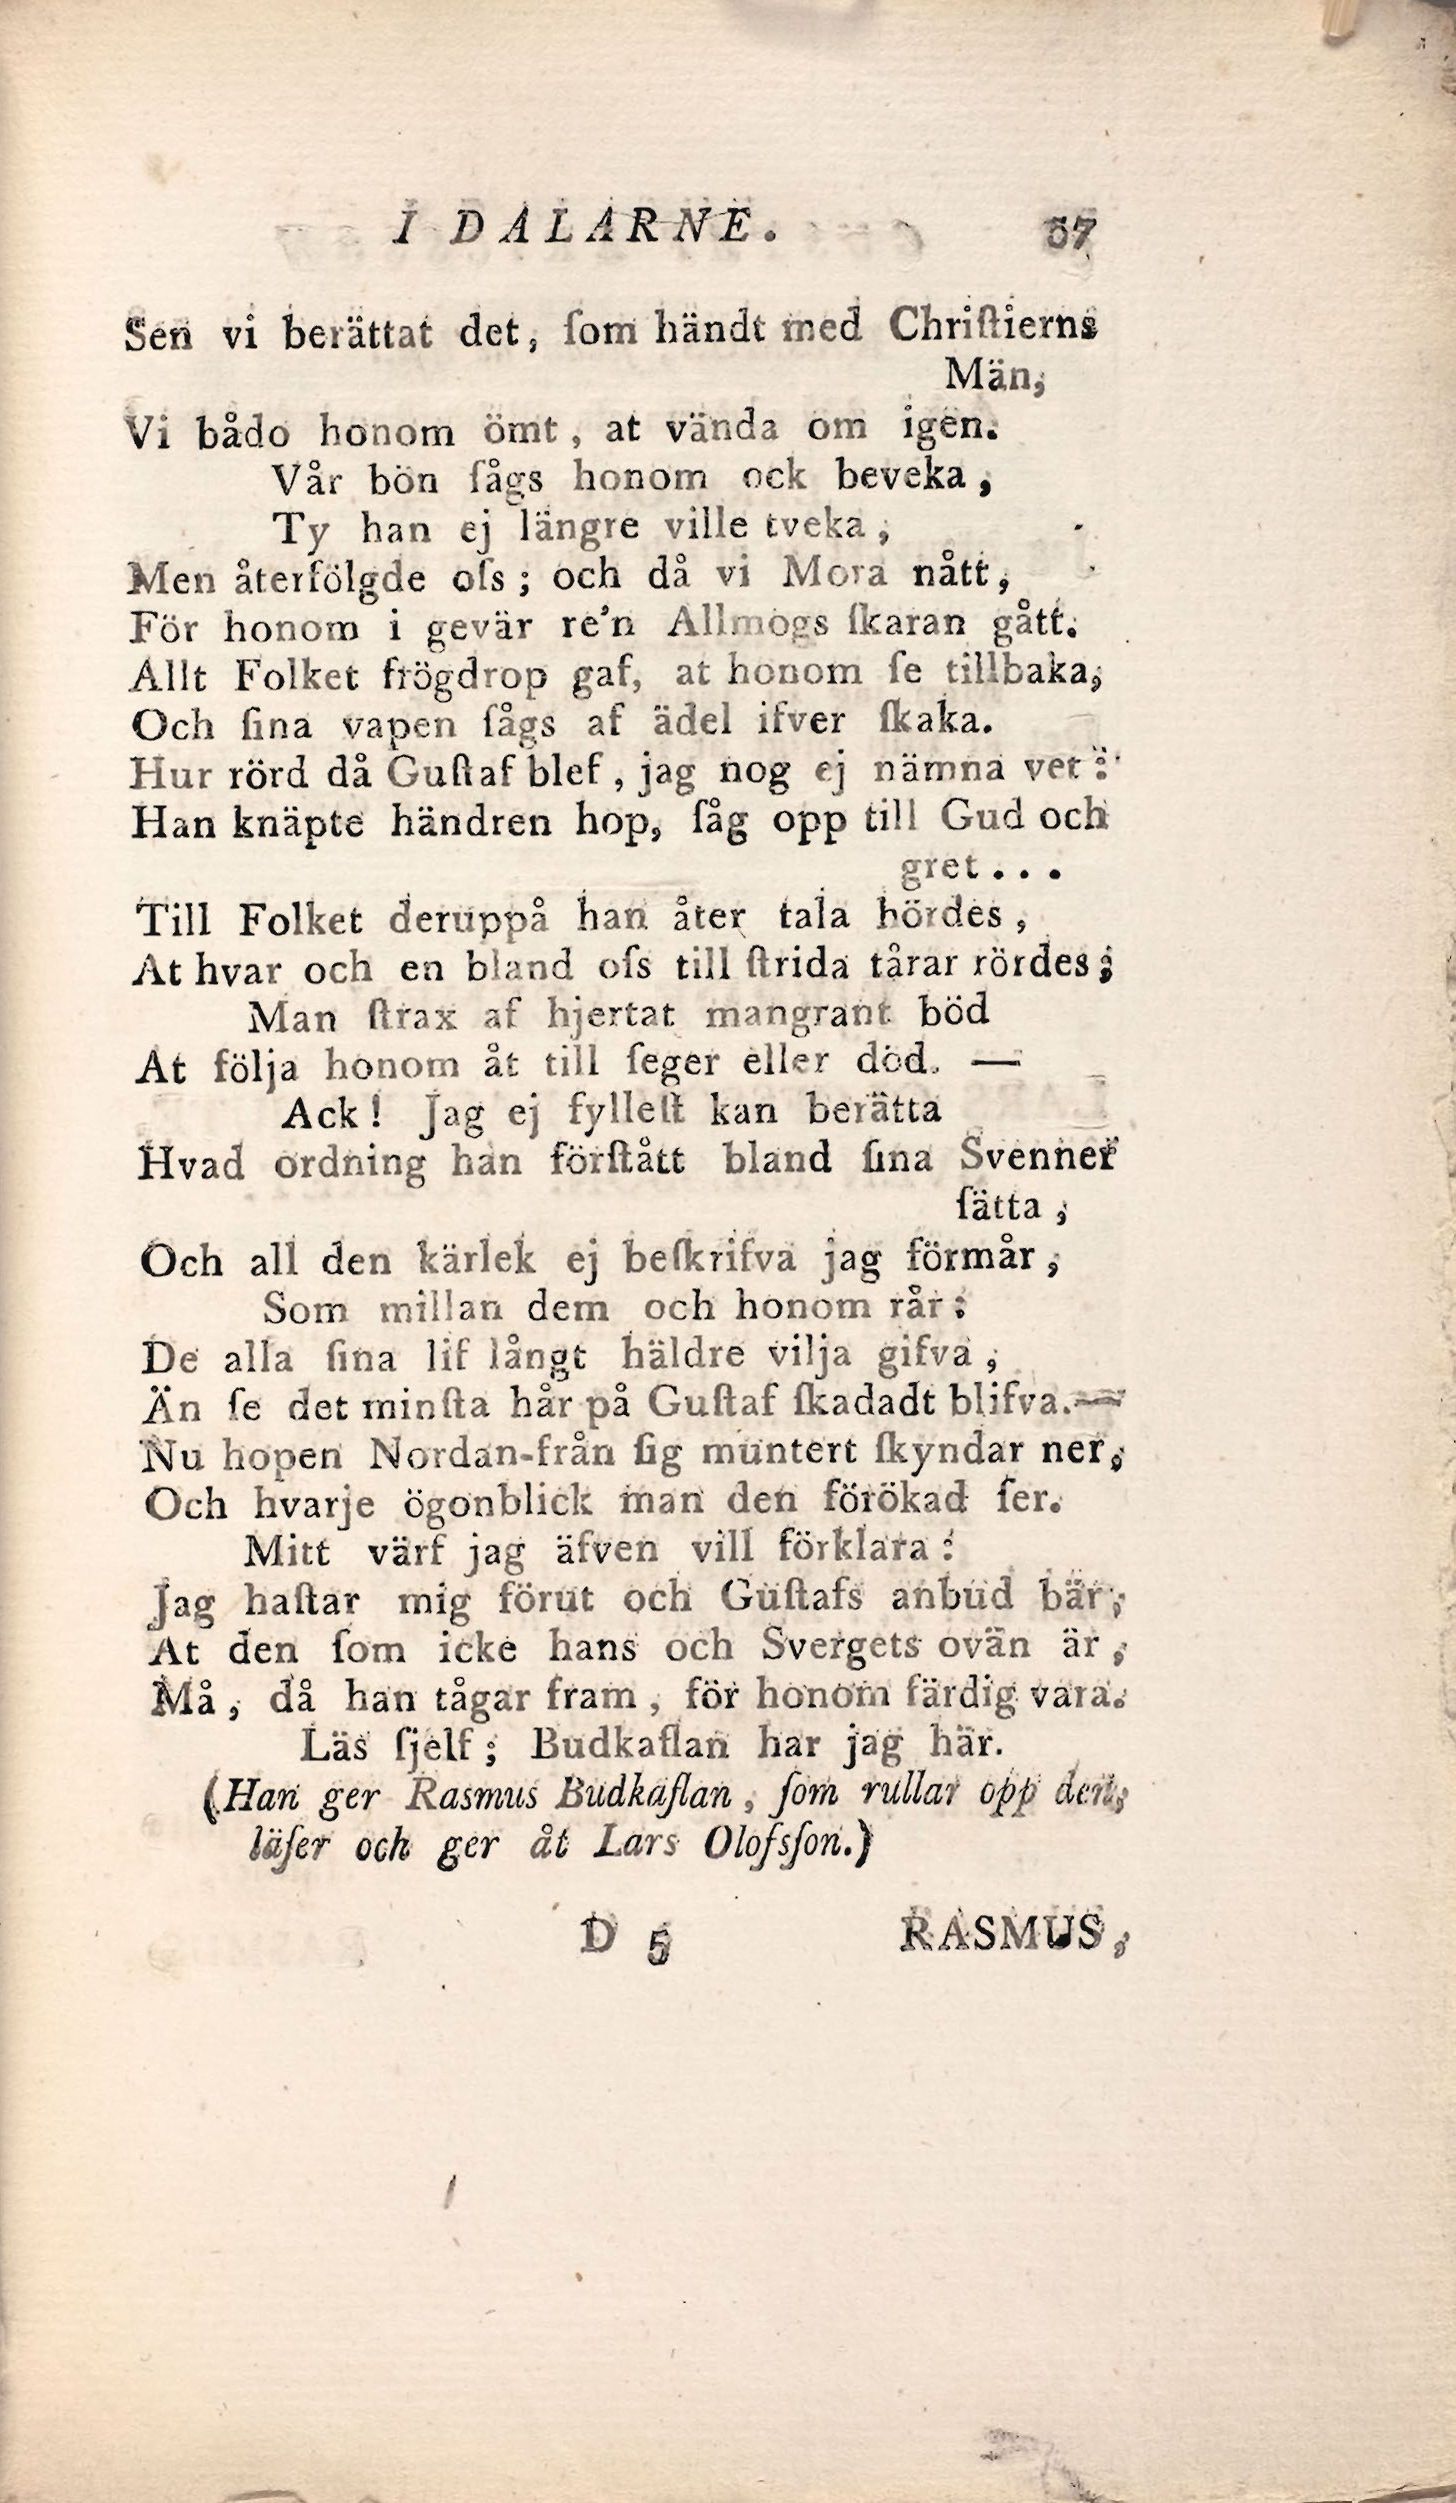 I DALARNE. 57
Sen vi berättat det, ſom händt med Chriſtierns
Män,
Vi bådo honom ömt, at vända om igen.
Vår bön ſågs honom ock beveka,
Ty han ej längre ville tveka,
Men återfölgde oſs; och då vi Mora nått,
För honom i gevär re'n Allmogs ſkaran gått.
Allt Folket frögdrop gaf, at honom ſe tillbaka,
Och ſina vapen ſågs af ädel ifver ſkaka.
Hur rörd då Guſtaf blef, jag nog ej nämna vet:
Han knäpte händren hop, ſåg opp till Gud och
gret...
Till Folket deruppå han åter tala hördes,
At hvar och en bland oſs till ſtrida tårar rördes;
Man ſtrax af hjertat mangrant böd
At följa honom åt till ſeger eller död. —
Ack! Jag ej fylleſt kan berätta
Hvad ordning han förſtått bland ſina Svenner
ſätta,
Och all den kärlek ej beſkrifva jag förmår,
Som millan dem och honom rår:
De alla ſina lif långt häldre vilja gifva,
Än ſe det minſta hår på Guſtaf ſkadadt blifva.—
Nu hopen Nordan-från ſig muntert ſkyndar ner,
Och hvarje ögonblick man den förökad ſer.
Mitt värf jag äfven vill förklara:
Jag haſtar mig förut och Guſtafs anbud bär,
At den ſom icke hans och Sverges ovän är,
Må, då han tågar fram, för honom färdig vara.
Läs ſjelf; Budkaflan har jag här.
(Han ger Rasmus Budkaflan, ſom rullar opp den,
läſer och ger åt Lars Olofsſon.)
D 5 RASMUS,